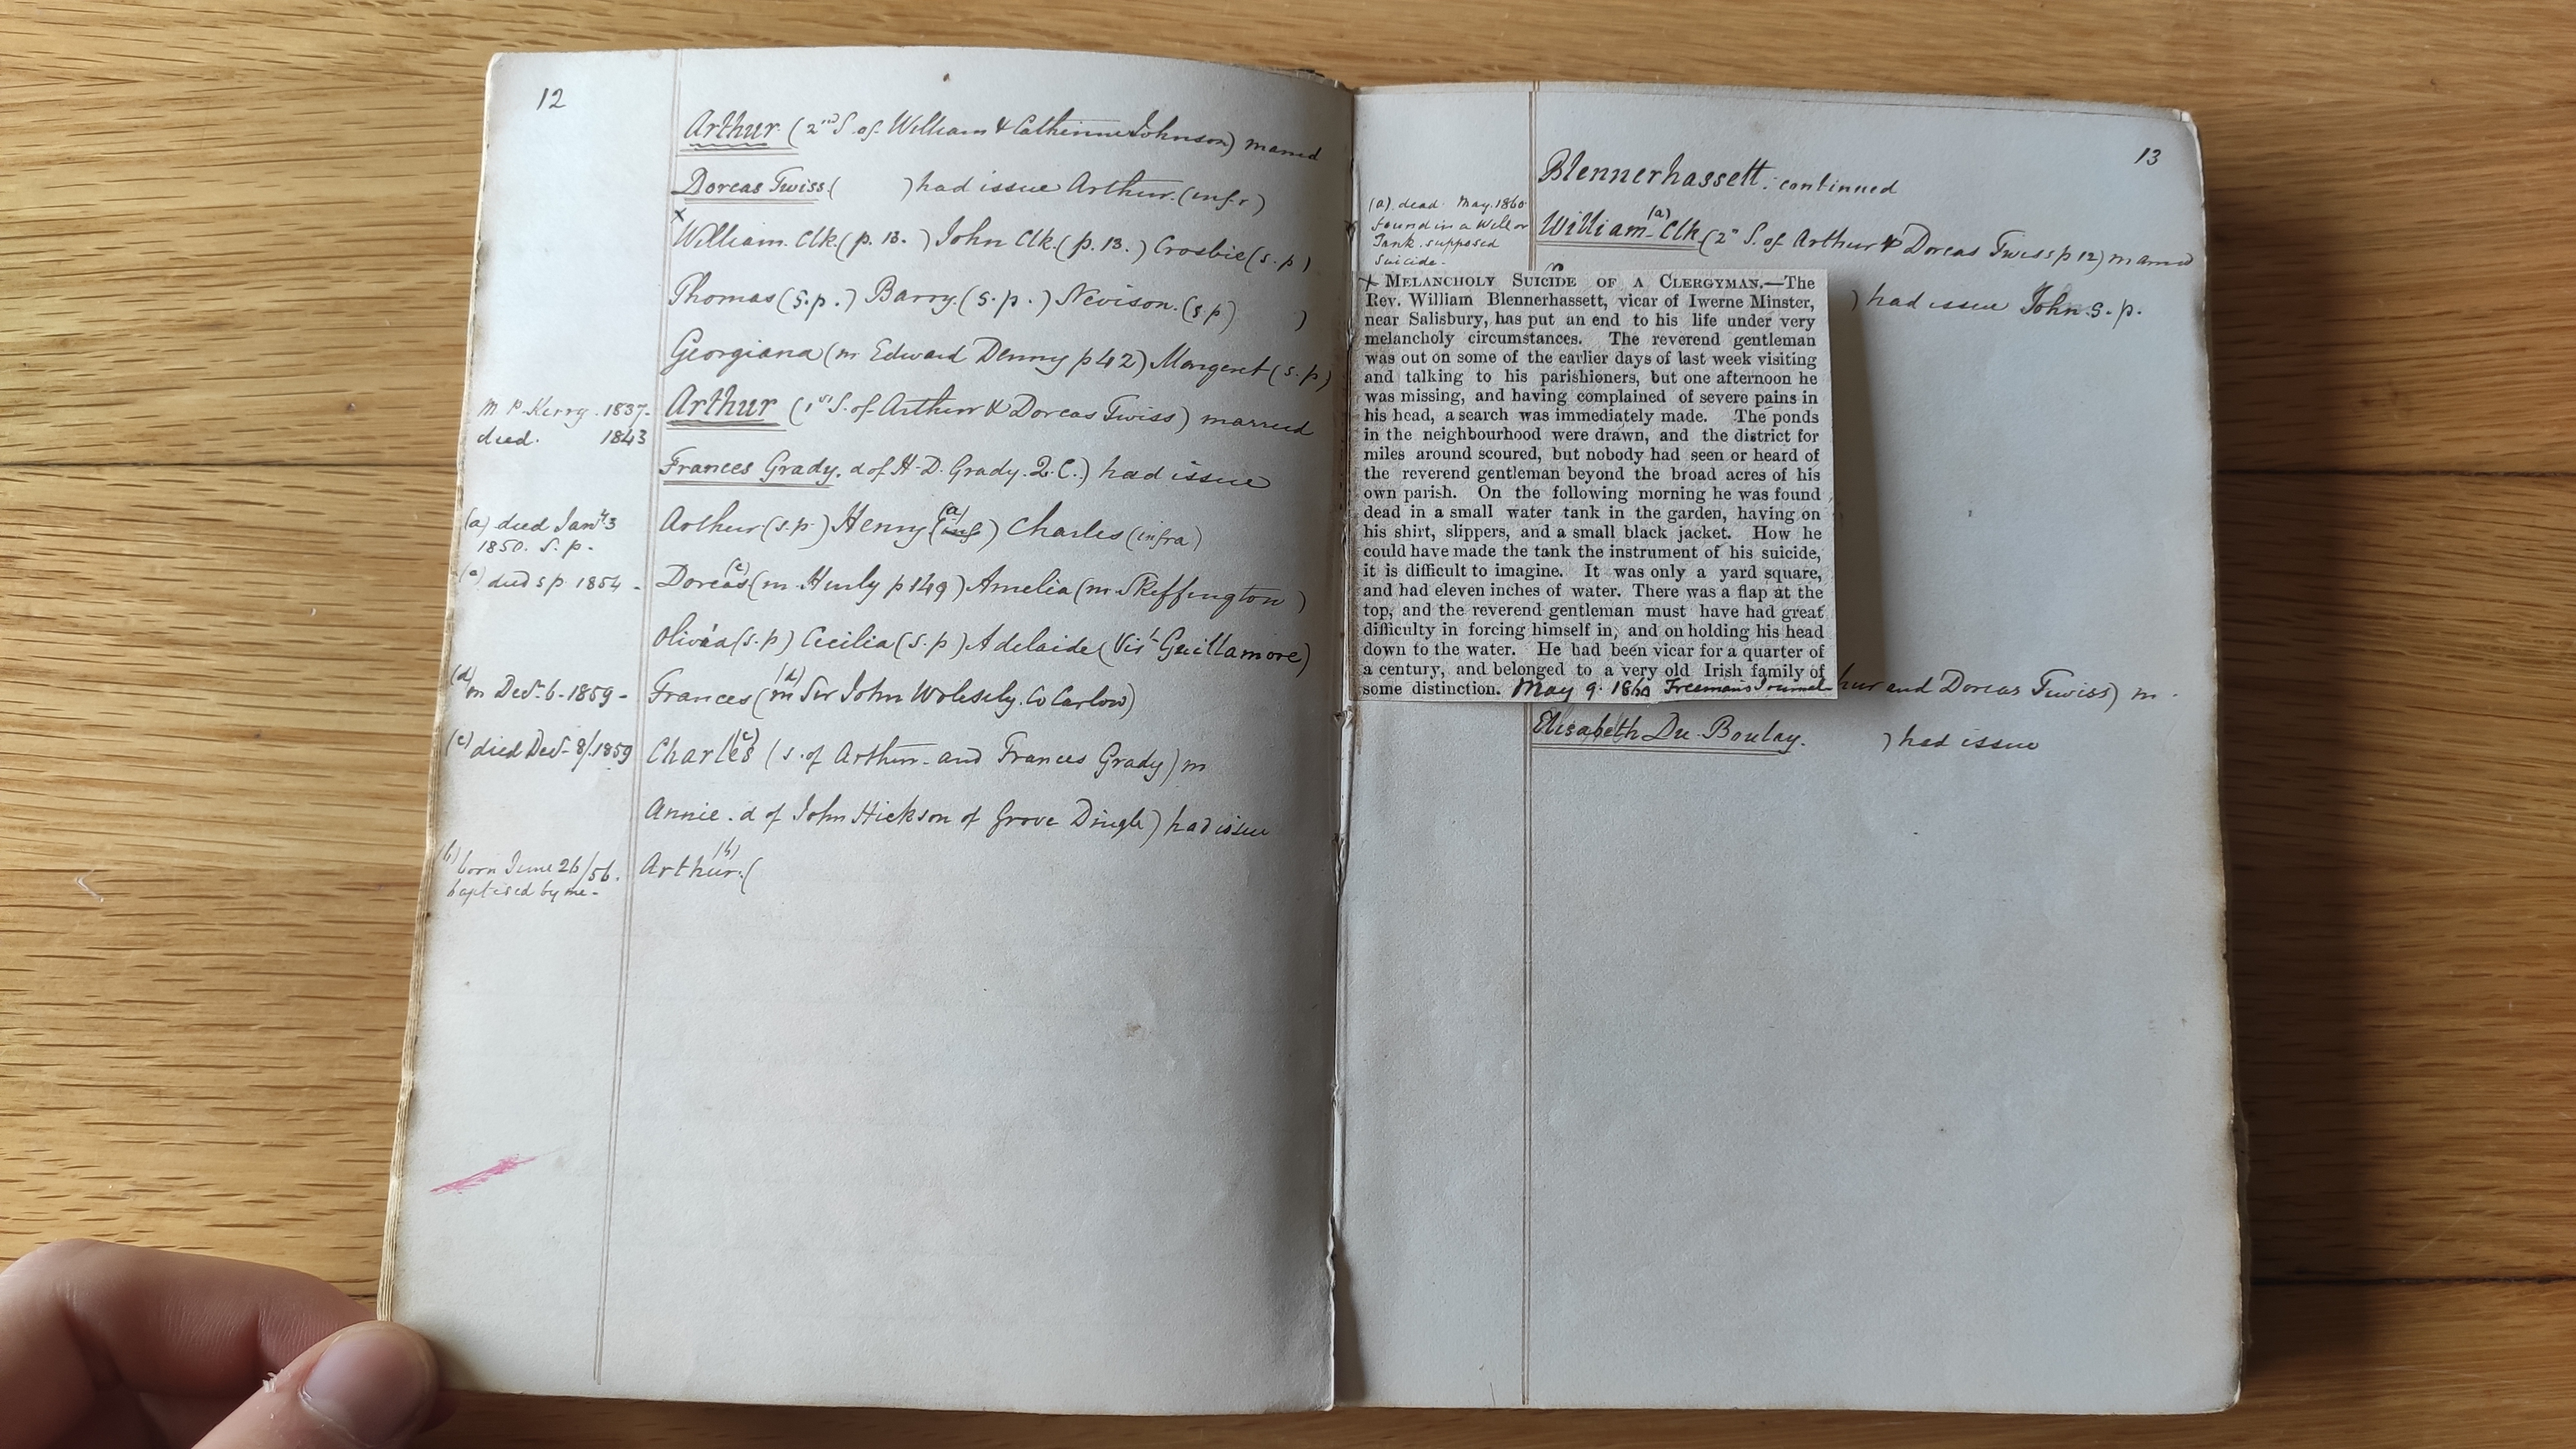 12
Arthur (2nd S. of William & Catherine Johnson) married
Dorcas Twiss ( ) had issue Arthur. (infr)
x
William. Clk. (p. 13. ) John Clk. (p. 13.) Crosbie (s. p)
Thomas (s.p.) Barry. (s. p.) Nevison. (s.p) )
Georgiana (m Edward Denny p 42) Margeret (s. p)
M P. Kerry. 1837- Arthur (1st S. of Arthur & Dorcas Twiss) married
died. 1843
Frances Grady. d of H. D. Grady. Q. C.) had issue
(a) died Jany 3 Arthur (s. p) Henry (a) (inf) Charles (infra)
1850. S. p.
died s p 1854 - Dorcas (m. Hurly p 149) Amelia (m Skeffington)
Olivia (s. p) Cecilia (s. p) Adelaide (Vist Guillamore)
(d) m Decr. 6 - 1859 - Frances (d) (m Sir John Wolesely. Co Carlow)
(c) died Decr 8/. 1859 Charles (c) (s. of Arthur and Frances Grady) m
Annie. d of John Hickson of Grove Dingle) had issue
(b) born June 26/56. Arthur. (b) (
baptised by me -
13
Blennerhassett. continued
(a). dead May. 1860
found in a Well or
Tank. supposed
suicide.
William (a) Clk (2nd S. of Arthur & Dorcas Twiss p 12) married
) had issue John. s. p.
x MELANCHOLY SUICIDE OF A CLERGYMAN.—The
Rev. William Blennerhassett, vicar of Iwerne Minster,
near Salisbury, has put an end to his life under very
melancholy circumstances. The reverend gentleman
was out on some of the earlier days of last week visiting
and talking to his parishioners, but one afternoon he
was missing, and having complained of severe pains in
his head, a search was immediately made. The ponds
in the neighbourhood were drawn, and the district for
miles around scoured, but nobody had seen or heard of
the reverend gentleman beyond the broad acres of his
own parish. On the following morning he was found
dead in a small water tank in the garden, having on
his shirt, slippers, and a small black jacket. How he
could have made the tank the instrument of his suicide,
it is difficult to imagine. It was only a yard square,
and had eleven inches of water. There was a flap at the
top, and the reverend gentleman must have had great
difficulty in forcing himself in, and on holding his head
down to the water. He had been vicar for a quarter of
a century, and belonged to a very old Irish family of
some distinction. May 9. 1860 Freemans Journal
hur and Dorcas Twiss) m.
Elisabeth Du Boulay. ) had issue